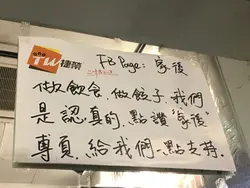 TW捷榮 FB Page: 家後
做飲食，做餃子，我們
是認真的，點讚"家後"
專頁，給我們一點支持。